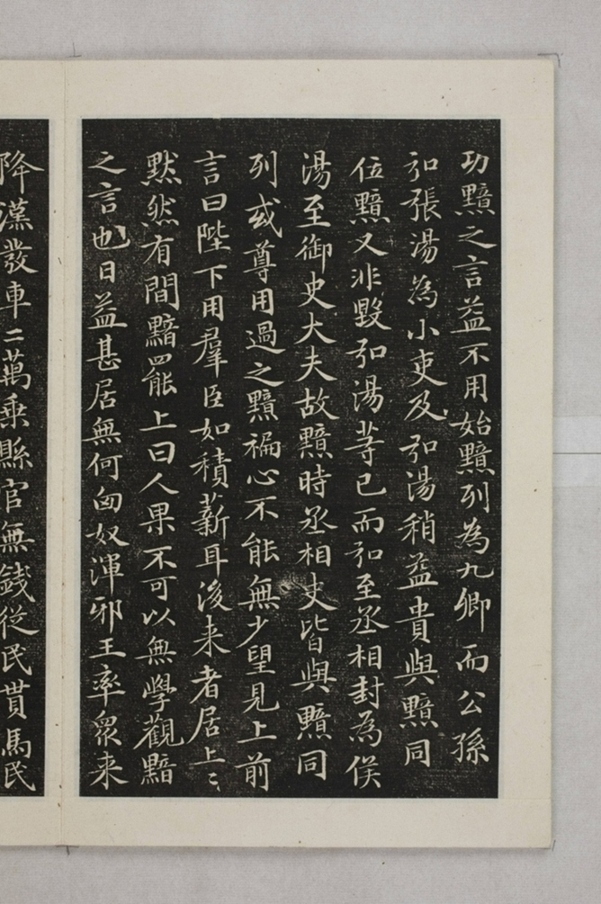 功黯之言益不用始黯列為九卿而公孫
弘張湯為小吏及弘湯稍益貴與黯同
位黯又非毀弘湯等已而弘至丞相封為侯
湯至御史大夫故黯時丞相史皆與黯同
列或尊用過之黯褊心不能無少望見上前
言曰陛下用羣臣如積薪耳後来者居上〻
默然有間黯罷上曰人果不可以無學觀黯
之言也日益甚居無何匈奴渾邪王率眾来
降漢發車二萬乗縣官無錢從民貰馬民